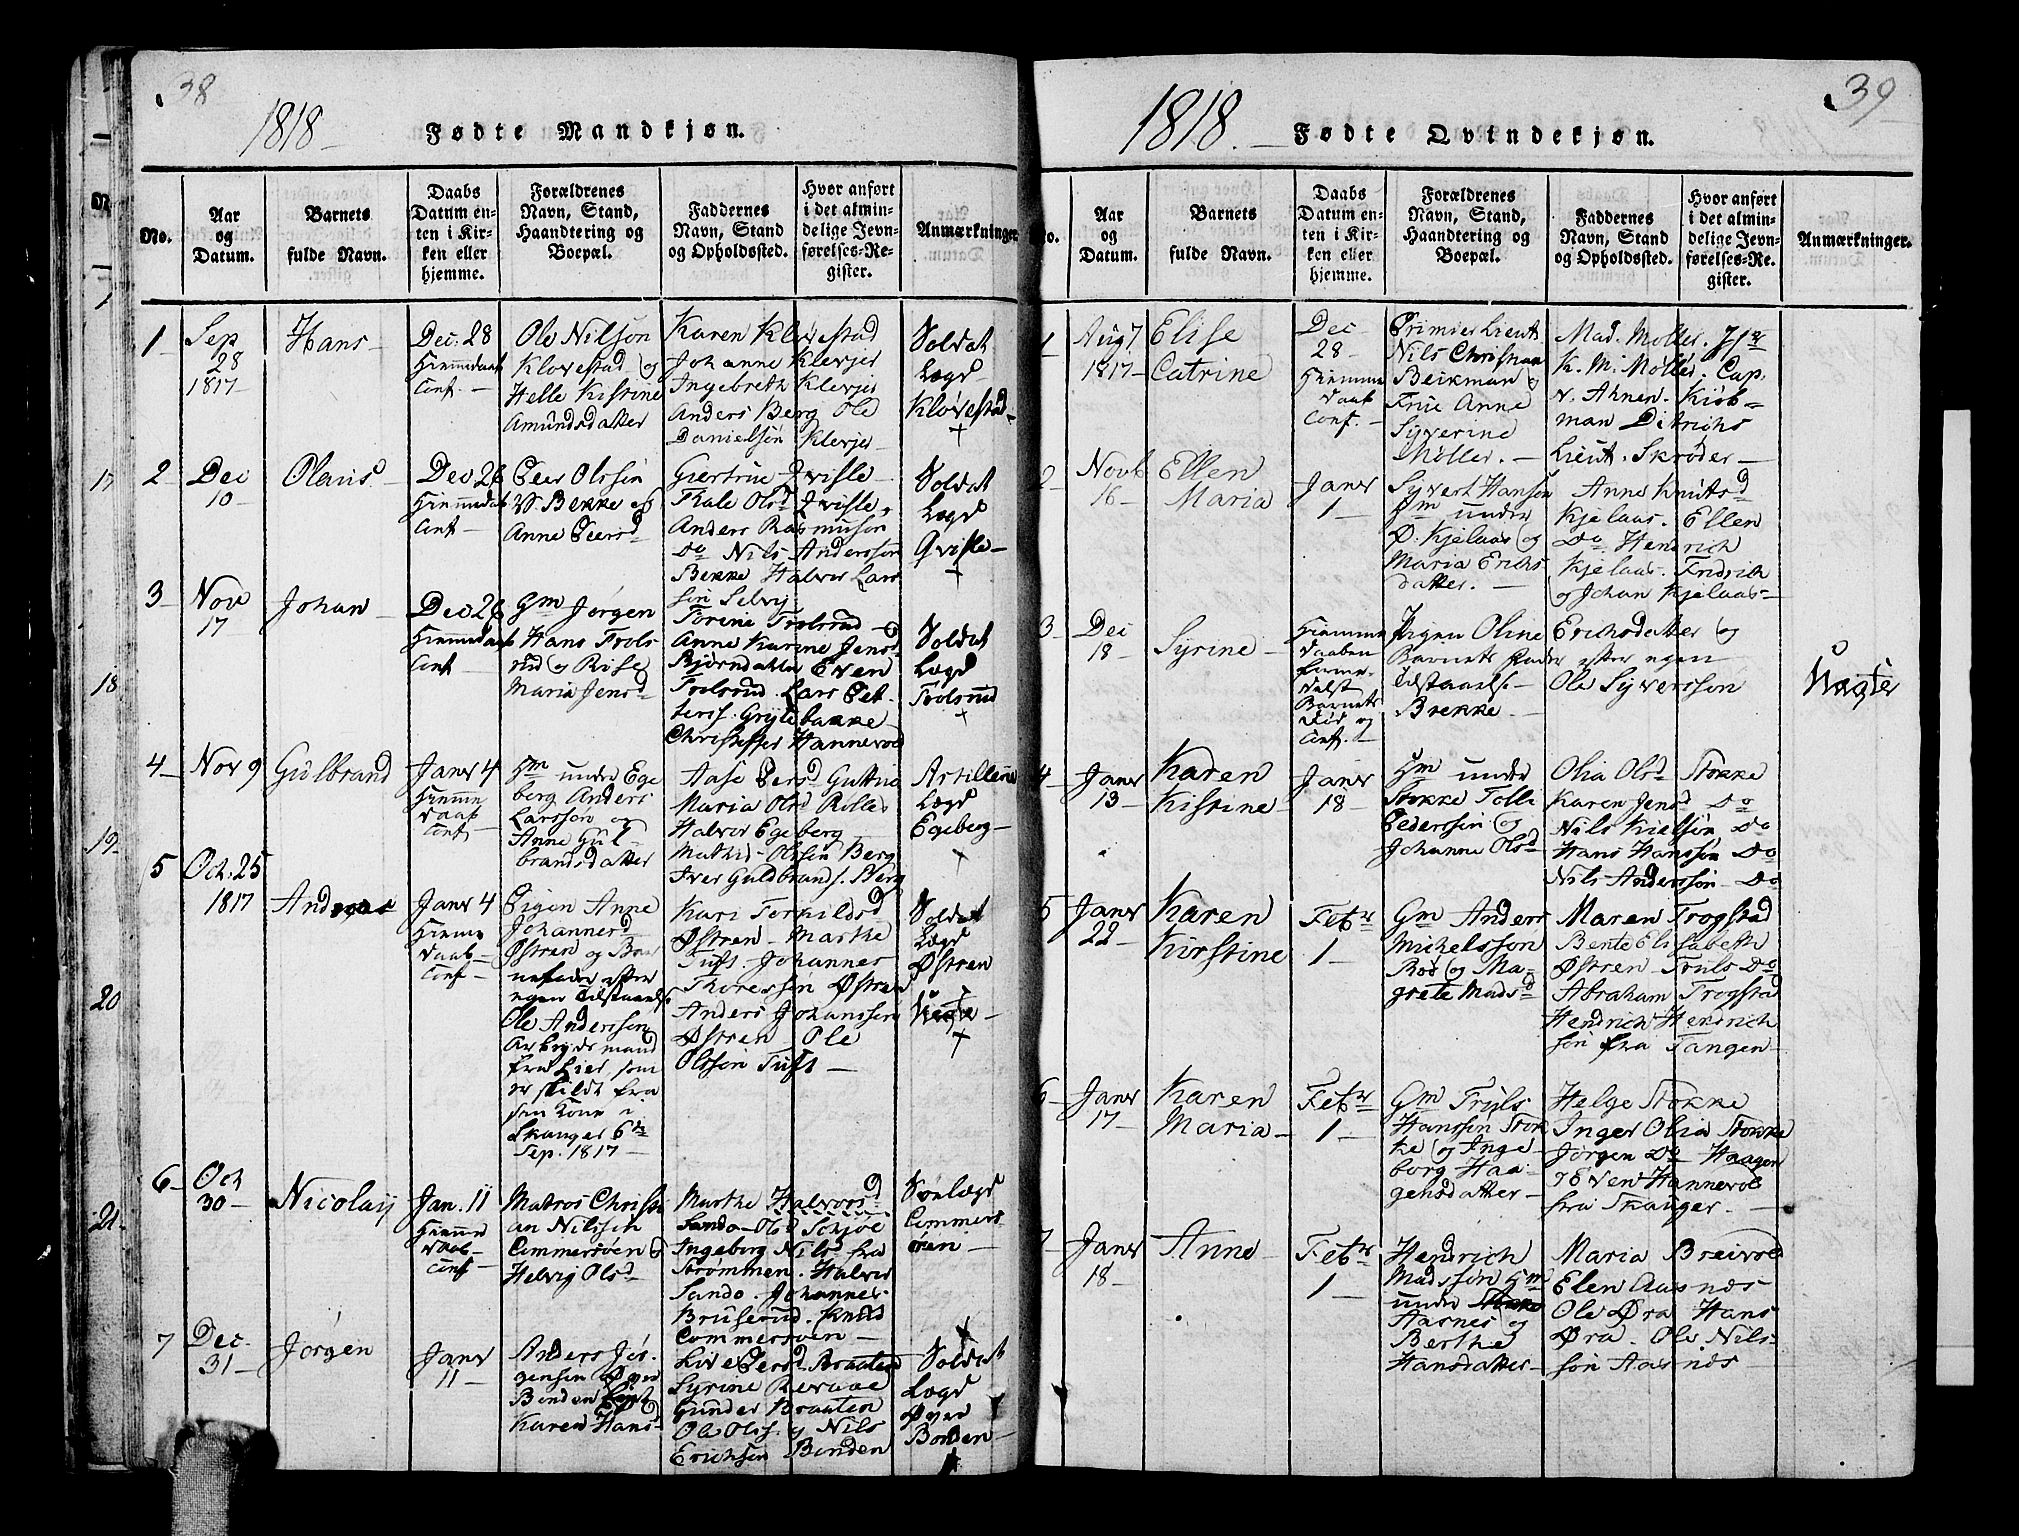 38
1818
Fødte Mandkjøn.
No.
Aar
og
Datum.
Barnets
fulde Navn.
Daabs
Datum en-
ten i Kir-
ken eller
hjemme.
Forældrenes
Navn, Stand,
Haandtering og
Boepæl.
Faddernes
Navn, Stand
og Opholdssted.
Hvor anført
i det almin-
delige Jevn-
førelses-Re-
gister.
Anmærkninger
1
Sep
28
1817
Hans
Dec. 28
Hiemmedaab
Conf.
Ole Nilson
Klovestad og
Helle Kistine
Amundsdatter
Karen Klovestad
Johanne Klevjer
Ingebreth Klevjer
Anders Berg Ole
Danielsøn Klevjer
Soldat
Lægd
Klovestad
2
Dec
10
Olaus
Dec 28
Hiemmedaab
Conf
Peer Olssøn
Bekke og
Anne Peersd
Giertrue Qvisle
Thale Olsd Qvisle,
Anders Rasmusøn
Do Nils Anderssøn
Bekke Halvor Lars
søn Selvig
Soldat
Lægd
Qvisle
3
Nov
17
Johan
Dec 28
Hiemmedaab
Conf
Gm Jørgen
Hans Trols
rud og Rise
Maria Jensd
Torine Trolsrud
Anne Karine Jensd
Bjørndalen Even
Trolsrud Lars Pet
terss. Grytebakke
Christoffer Hannevold
Soldat
Lægd
Trolsrud
4
Nov 9
Gulbrand
Janr 4
Hiemme
daab
Conf
Hm under Ege
berg Anders
Larssøn og
Anne Gul
brandsdatter
Aase Persd
Maria Olsd
Halvor Egeberg
Mathis Olssøn Berg
Iver Guldbrands. Berg
Artillerie
Lægd
Egeberg
5
Oct. 25
1817
Andreas
Janr 4
Hiemme
daab
Conf
Pigen Anne
Johannesd
Østren og Bar
nefader efter
egen Tilstaaelse
Ole Anderssøn
Arbeydsmand
fra Lier, som
er skildt fra
sin Kone i
Skauger 6te
Sep. 1817
Kari Terkildsd
Østren Marthe
Tuft. Johannes
Thoressøn Østren
Anders Johanssøn
Østren Ole
Olssøn Tuft
Soldat
Lægd
Østren
Uægte
6
Oct
30
Nicolaij
Jan. 11
Hiemme
daab
Conf
Matros Christi
an Nilssøn
Commersøen og
Helvig Olsd
Marthe Halvorsd
Sando Olsd
Ingeborg Nilsd fra
Strømmen. Halvor
Sando. Johannes
Bruserud. Knud
Commersøen
Søelægd
Commers
øen
7
Dec.
31
Jørgen
Janr
11
Anders Jør
gensen Øvre
Bonden
Karen Hans
Live Persd Braaten
Syrine Revaae
Gunder Braaten
Ole Olss. og Nils
Erichsen Bonden
Soldat
Lægd
Øvre
Bonden
39
1818.
Fødte Qvindekjøn.
No.
Aar
og
Datum.
Barnets
fulde Navn.
Daabs
Datum en-
ten i Kir-
ken eller
hjemme.
Forældrenes
Navn, Stand,
Haandtering og
Boepæl.
Faddernes
Navn, Stand
og Opholdssted.
Hvor anført
i det almin-
delige Jevn-
førelses-Re-
gister.
Anmærkninger.
1
Aug 7
1817
Elise
Catrine
Dec
28
Hiemme
daab
Conf.
Primier Lieut.
Nils Christian
Beikman og
Frue Anne
Syverine
Møller.
Mad. Møller. Jfr
K. M. Møller. Cap.
v. Ahnen. Kiøb-
man Ditrichs
Lieut. Skrøder
2
Novb
16
Ellen
Maria
Janr
1
Syvert Hansøn
Hm under
Ø. Kjelaas og
Maria Erichs
datter.
Anne Knutsd
Kjelaas. Ellen
Do. Hendrich
Kjelaas. Fridrich
og Johan Kjelaas
3
Dec
18
Syrine
Hiemme
daaben
forret-
tedes
Barnets
Død og
Conf.
Pigen Oline Erichsdatter og
Barnets Fader efter egen
Tilstaaelse Ole Syverssøn
Brekke
Uægte
4
Janr
13
Karen
Kistine
Janr
18
Hm under
Stokke Tolle
Pederssøn og
Johanne Olsd
Olia Olsd Stokke
Karen Jensd Do
Nils Kielsøn Do
Hans Hanssøn Do
Nils Anderssøn Do
5
Janr
22
Karen
Kirstine
Febr
1
Gm Anders
Michelssøn
Rød og Ma-
grete Madsd
Maren Trogstad
Bente Elisabeth
Østren Truls Do
Abraham Trogstad
Hendrich Hendrich
søn fra Tangen
6
Janr
17
Karen
Maria
Febr
1
Gm Truls
Hanssøn Stok
ke og Inge
borg Haa
gensdatter
Helge Stokke
Inger Olia Stokke
Jørgen Do Haagen
og Even Hannevol
fra Skauger.
7
Janr
18
Anne
Febr
1
Hendrich
Madssøn Hm
under
Aasnes og
Berthe
Hansdatter
Maria Breivol
Elen Aasnes
Ole Øra Hans
Øra. Ole Nils-
søn Aasnes
17
18
19
20
21